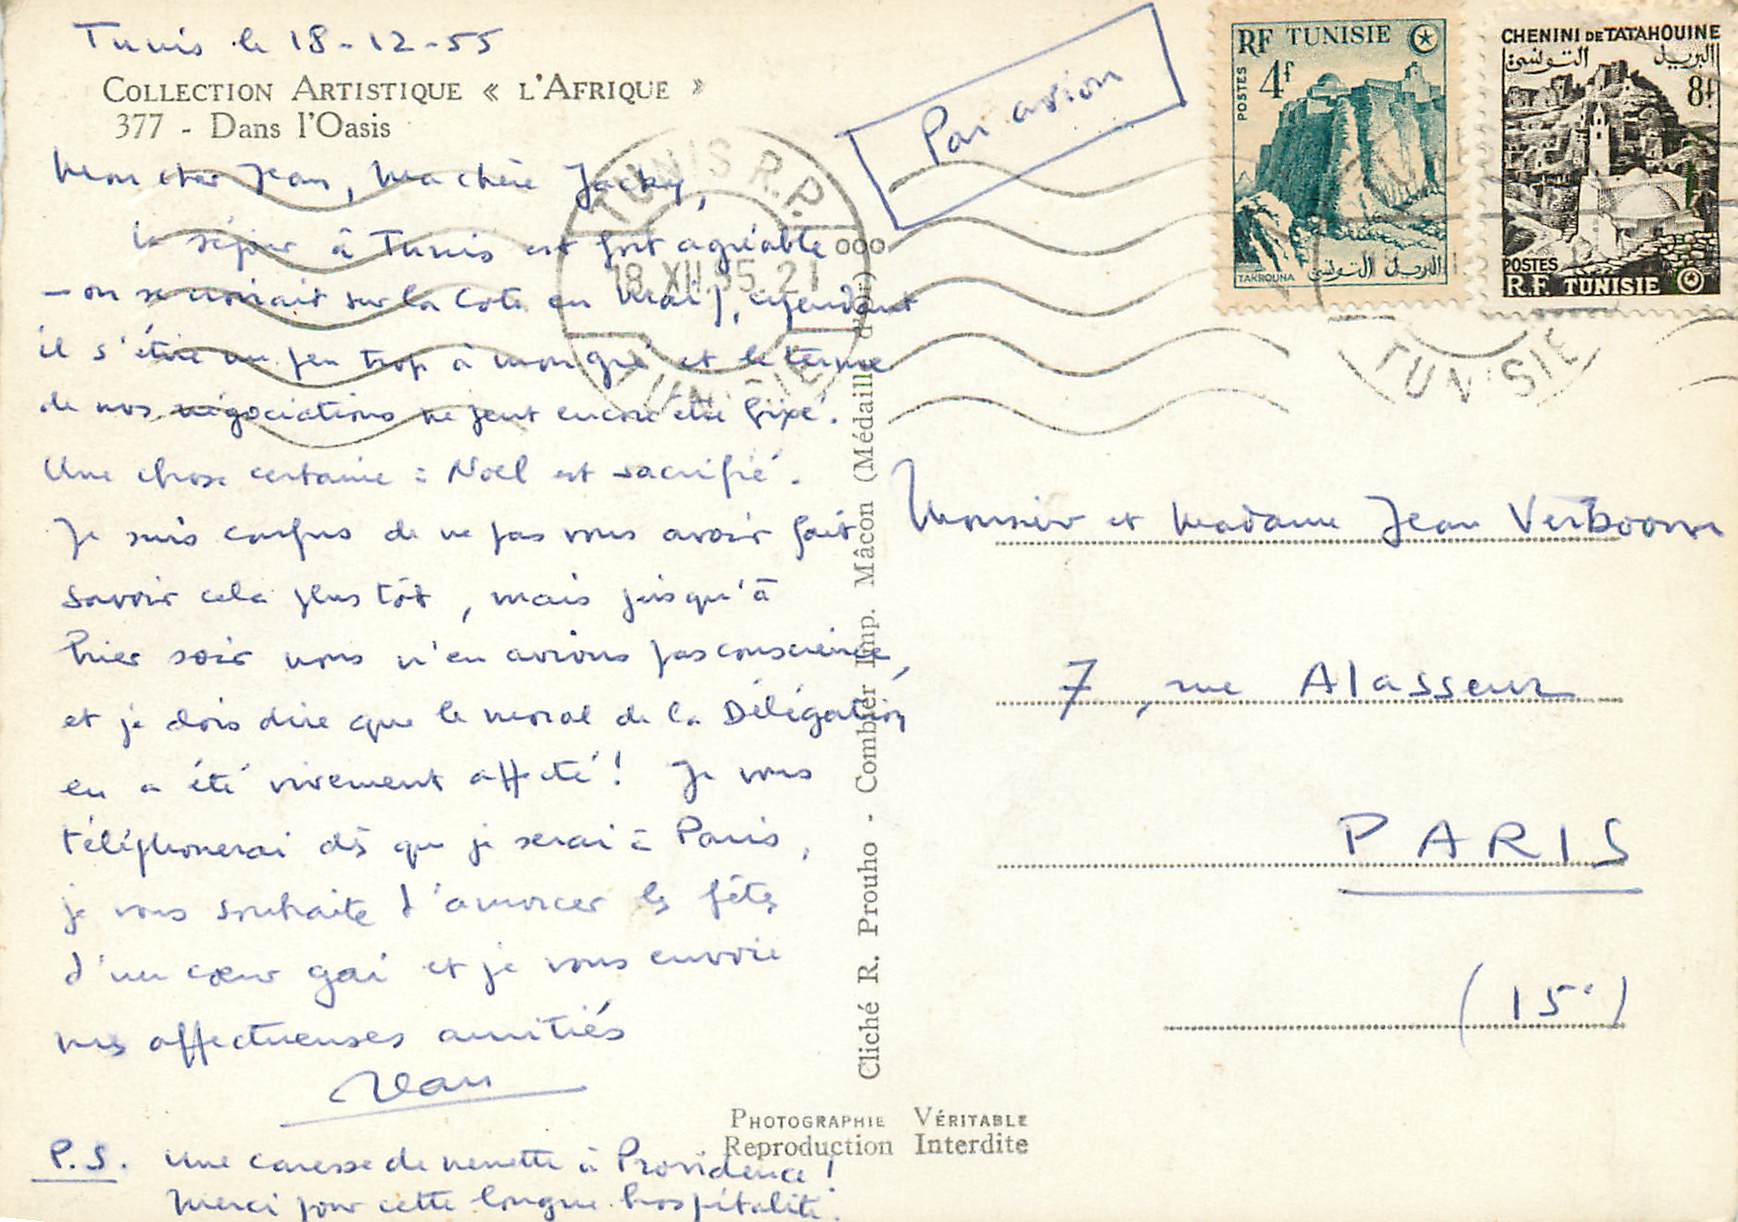 Tunis le 18-12-55
COLLECTION ARTISTIQUE « L'AFRIQUE »
377 - Dans l'Oasis
Mon cher Jean, Ma chère Jacky,
le séjour à Tunis est fort agréable
- on se croirait sur la Cote en Mai), cependant
il s'étire un peu trop à mon gré et le terme
de nos négociations ne peut encore être fixé.
Une chose certaine : Noël est sacrifié.
Je suis confus de ne pas vous avoir fait
savoir cela plus tôt, mais jusqu'à
hier soir nous n'en avions pas conscience,
et je dois dire que le moral de la Délégation
en a été vivement affecté! Je vous
téléphonerai dès que je serai à Paris,
je vous souhaite d'amorcer les fêtes
d'un cœur gai et je vous envoie
mes affectueuses amitiés
Jean
P.S. Une caresse de menotte à Providence!
Merci pour cette longue hospitalité.
Par avion
TUNIS R.P.
18.XII.55.21
TUNISIE
RF TUNISIE
POSTES
4f
TAKROUNA
البريد التونسي
CHENINI DE TATAHOUINE
البريد التونسي
8f
POSTES
R.F. TUNISIE
TUNISIE
Monsieur et Madame Jean Verboom
7, rue Alasseur
PARIS
(15e)
Cliché R. Prouho - Combier Imp. Mâcon (Médaille d'or) 000
PHOTOGRAPHIE VÉRITABLE
Reproduction Interdite